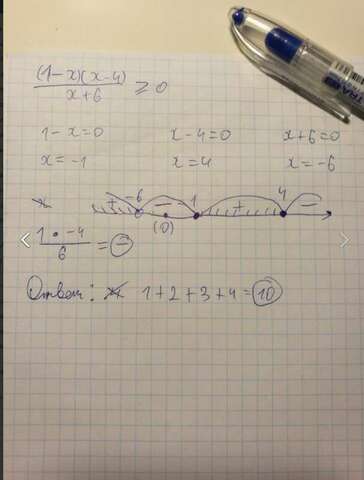 (1-x)(x-4)/x+6 ≥ 0
1-x=0 x-4=0 x+6=0
x=-1 x=4 x=-6
+ -6 - -1 + 4 -
(0)
1 • -4/6 = -
Ответ: 1+2+3+4=10